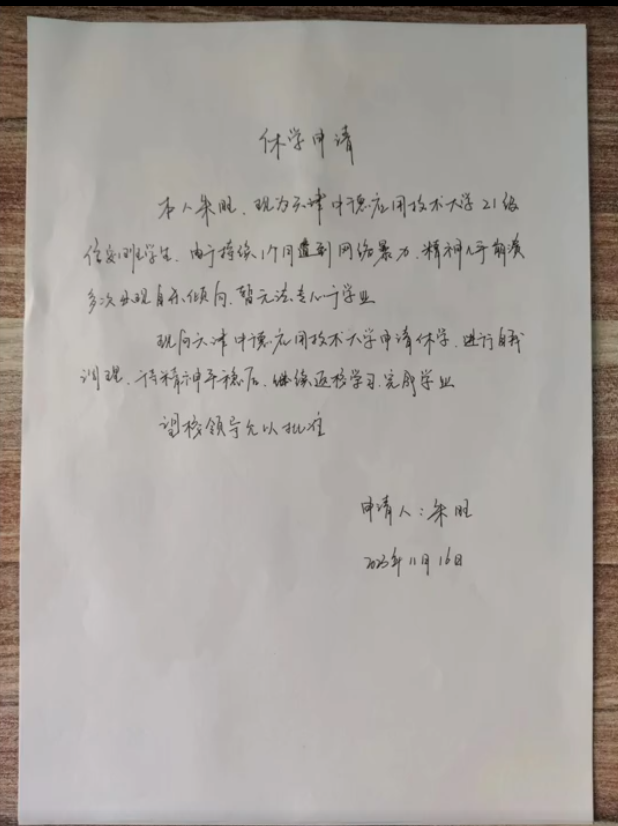 休学申请
本人朱旺，现为天津中德应用技术大学21级
信安班学生，由于持续1个月遭到网络暴力，精神几乎崩溃
多次出现自杀倾向，暂无法专心于学业
现向天津中德应用技术大学申请休学，进行自我
调理，待精神平稳后，继续返校学习，完成学业
望校领导允以批准
申请人：朱旺
2023年11月16日